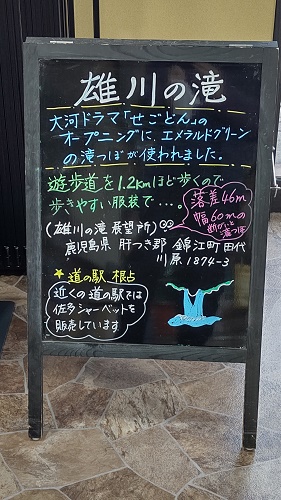 雄川の滝
大河ドラマ「せごどん」の
オープニングに、エメラルドグリーン
の滝つぼが使われました。
遊歩道を1.2kmほど歩くので
歩きやすい服装で・・・。
落差46m
幅60mの
断がいと
滝つぼ
(雄川の滝 展望所)
鹿児島県 肝つき郡 錦江町 田代
川原 1874-3
★道の駅 根占
近くの道の駅では
佐多シャーベットを
販売しています